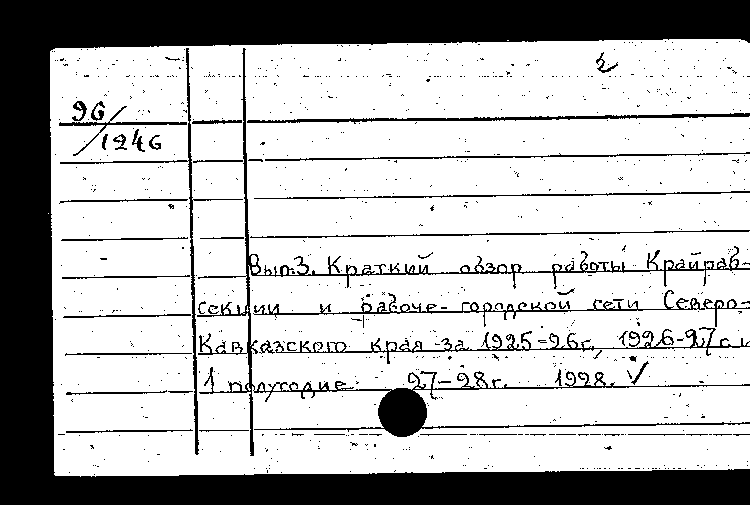 2
96/1246
Вып.3. Краткий обзор работы Крайраб-
секции и рабоче-городской сети Северо-
Кавказского края за 1925-26г., 1926-27г. и
1 полугодие 27-28г. 1928.